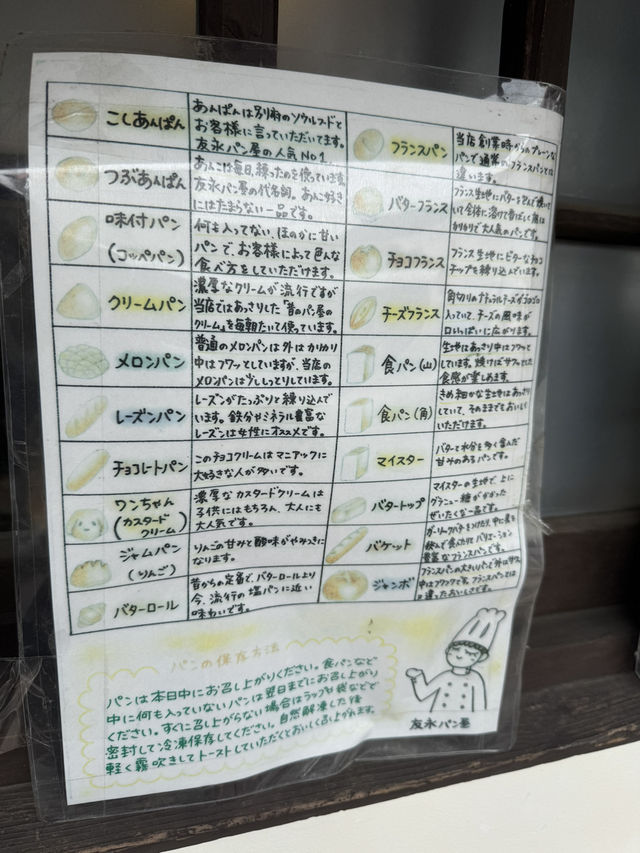 こしあんぱん
あんぱんは別府のソウルフードと
お客様に言っていただいてます。
友永パン屋の人気No1
つぶあんぱん
あんこは毎日、練ったのを使っています。
友永パン屋の代名詞。あんこ好き
にはたまらない一品です。
味付パン
(コッペパン)
何も入ってない、ほのかに甘い
パンで、お客様によって色んな
食べ方をしていただけます。
クリームパン
濃厚なクリームが流行ですが
当店ではあっさりした「昔のパン屋の
クリーム」を毎朝たいて使っています。
メロンパン
普通のメロンパンは外はカリカリ
中はフワッとしていますが、当店の
メロンパンは少ししっとりしています。
レーズンパン
レーズンがたっぷりと練り込んで
います。鉄分やミネラル豊富な
レーズンは女性にオススメです。
チョコレートパン
このチョコクリームはマニアックに
大好きな人が多いです。
ワンちゃん
(カスタード
クリーム)
濃厚なカスタードクリームは
子供にはもちろん、大人にも
大人気です。
ジャムパン
(りんご)
りんごの甘みと酸味がやみつきに
なります。
バターロール
昔からの定番で、バターロールより
今、流行の塩パンに近い
味わいです。
フランスパン
当店創業時からのプレーンな
パンで通常のフランスパンとは
違います。
バターフランス
フランス生地にバターを包んで焼いて
いて全体に溶けて香ばしく底は
カリカリで大人気のパンです。
チョコフランス
フランス生地にビターなチョコ
チップを練り込んでいます。
チーズフランス
角切りのナチュラルチーズがゴロゴロ
入っていて、チーズの風味が
口いっぱいに広がります。
食パン(山)
生地はあっさり中はフワッと
しています。焼けばサクッとした
食感が楽しめます。
食パン(角)
きめ細かな生地はあっさり
していて、そのままでもおいしく
いただけます。
マイスター
バターと水分を多く含んだ
甘みのあるパンです。
バタートップ
マイスターの生地で、上に
グラニュー糖がかかった
ぜいたくな一品です。
バケット
ガーリックバターをつけたり、中に具を
挟んで食べたりとバリエーション
豊富なフランスパンです。
ジャンボ
フランスパンの大きいパンで外はサクッ
中はフワッです。フランスパンとは
違ったおいしさです。
パンの保存方法
パンは本日中にお召し上がりください。食パンなど
中に何も入っていないパンは翌日までにお召し上がり
ください。すぐに召し上がらない場合はラップや袋などで
密封して冷凍保存してください。自然解凍した後
軽く霧吹きしてトーストしていただくとおいしく召し上がれます。
友永パン屋